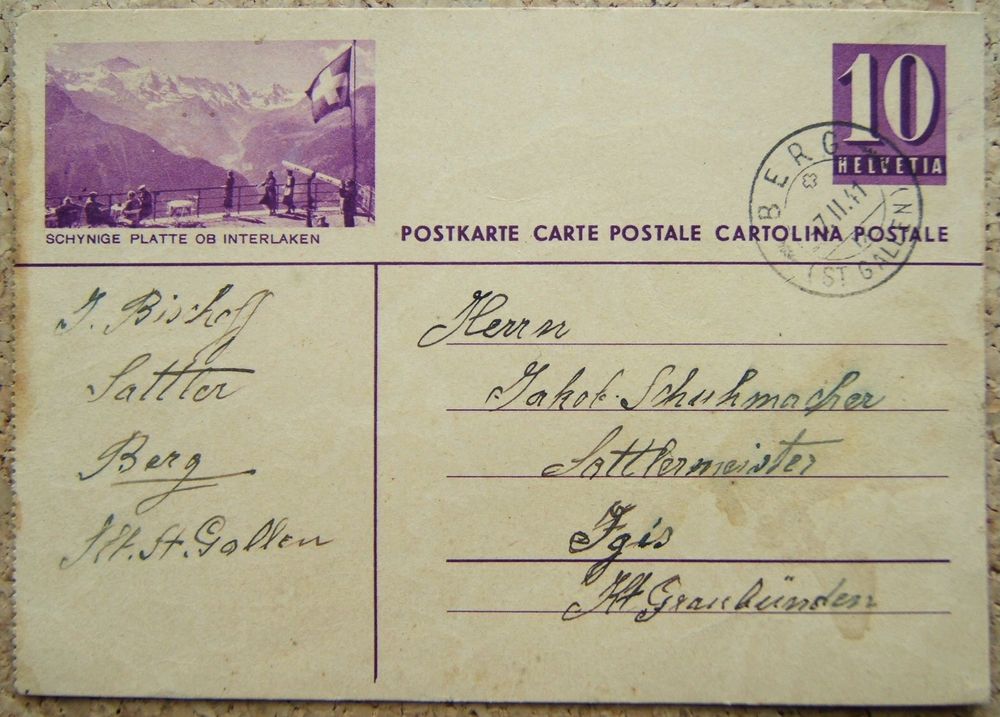 10
HELVETIA
SCHYNIGE PLATTE OB INTERLAKEN
POSTKARTE CARTE POSTALE CARTOLINA POSTALE
BERG
7.II.41
(ST GALLEN)
J. Bischoff
Sattler
Berg
Kt. St. Gallen
Herrn
Jakob Schuhmacher
Sattlermeister
Igis
Kt Graubünden